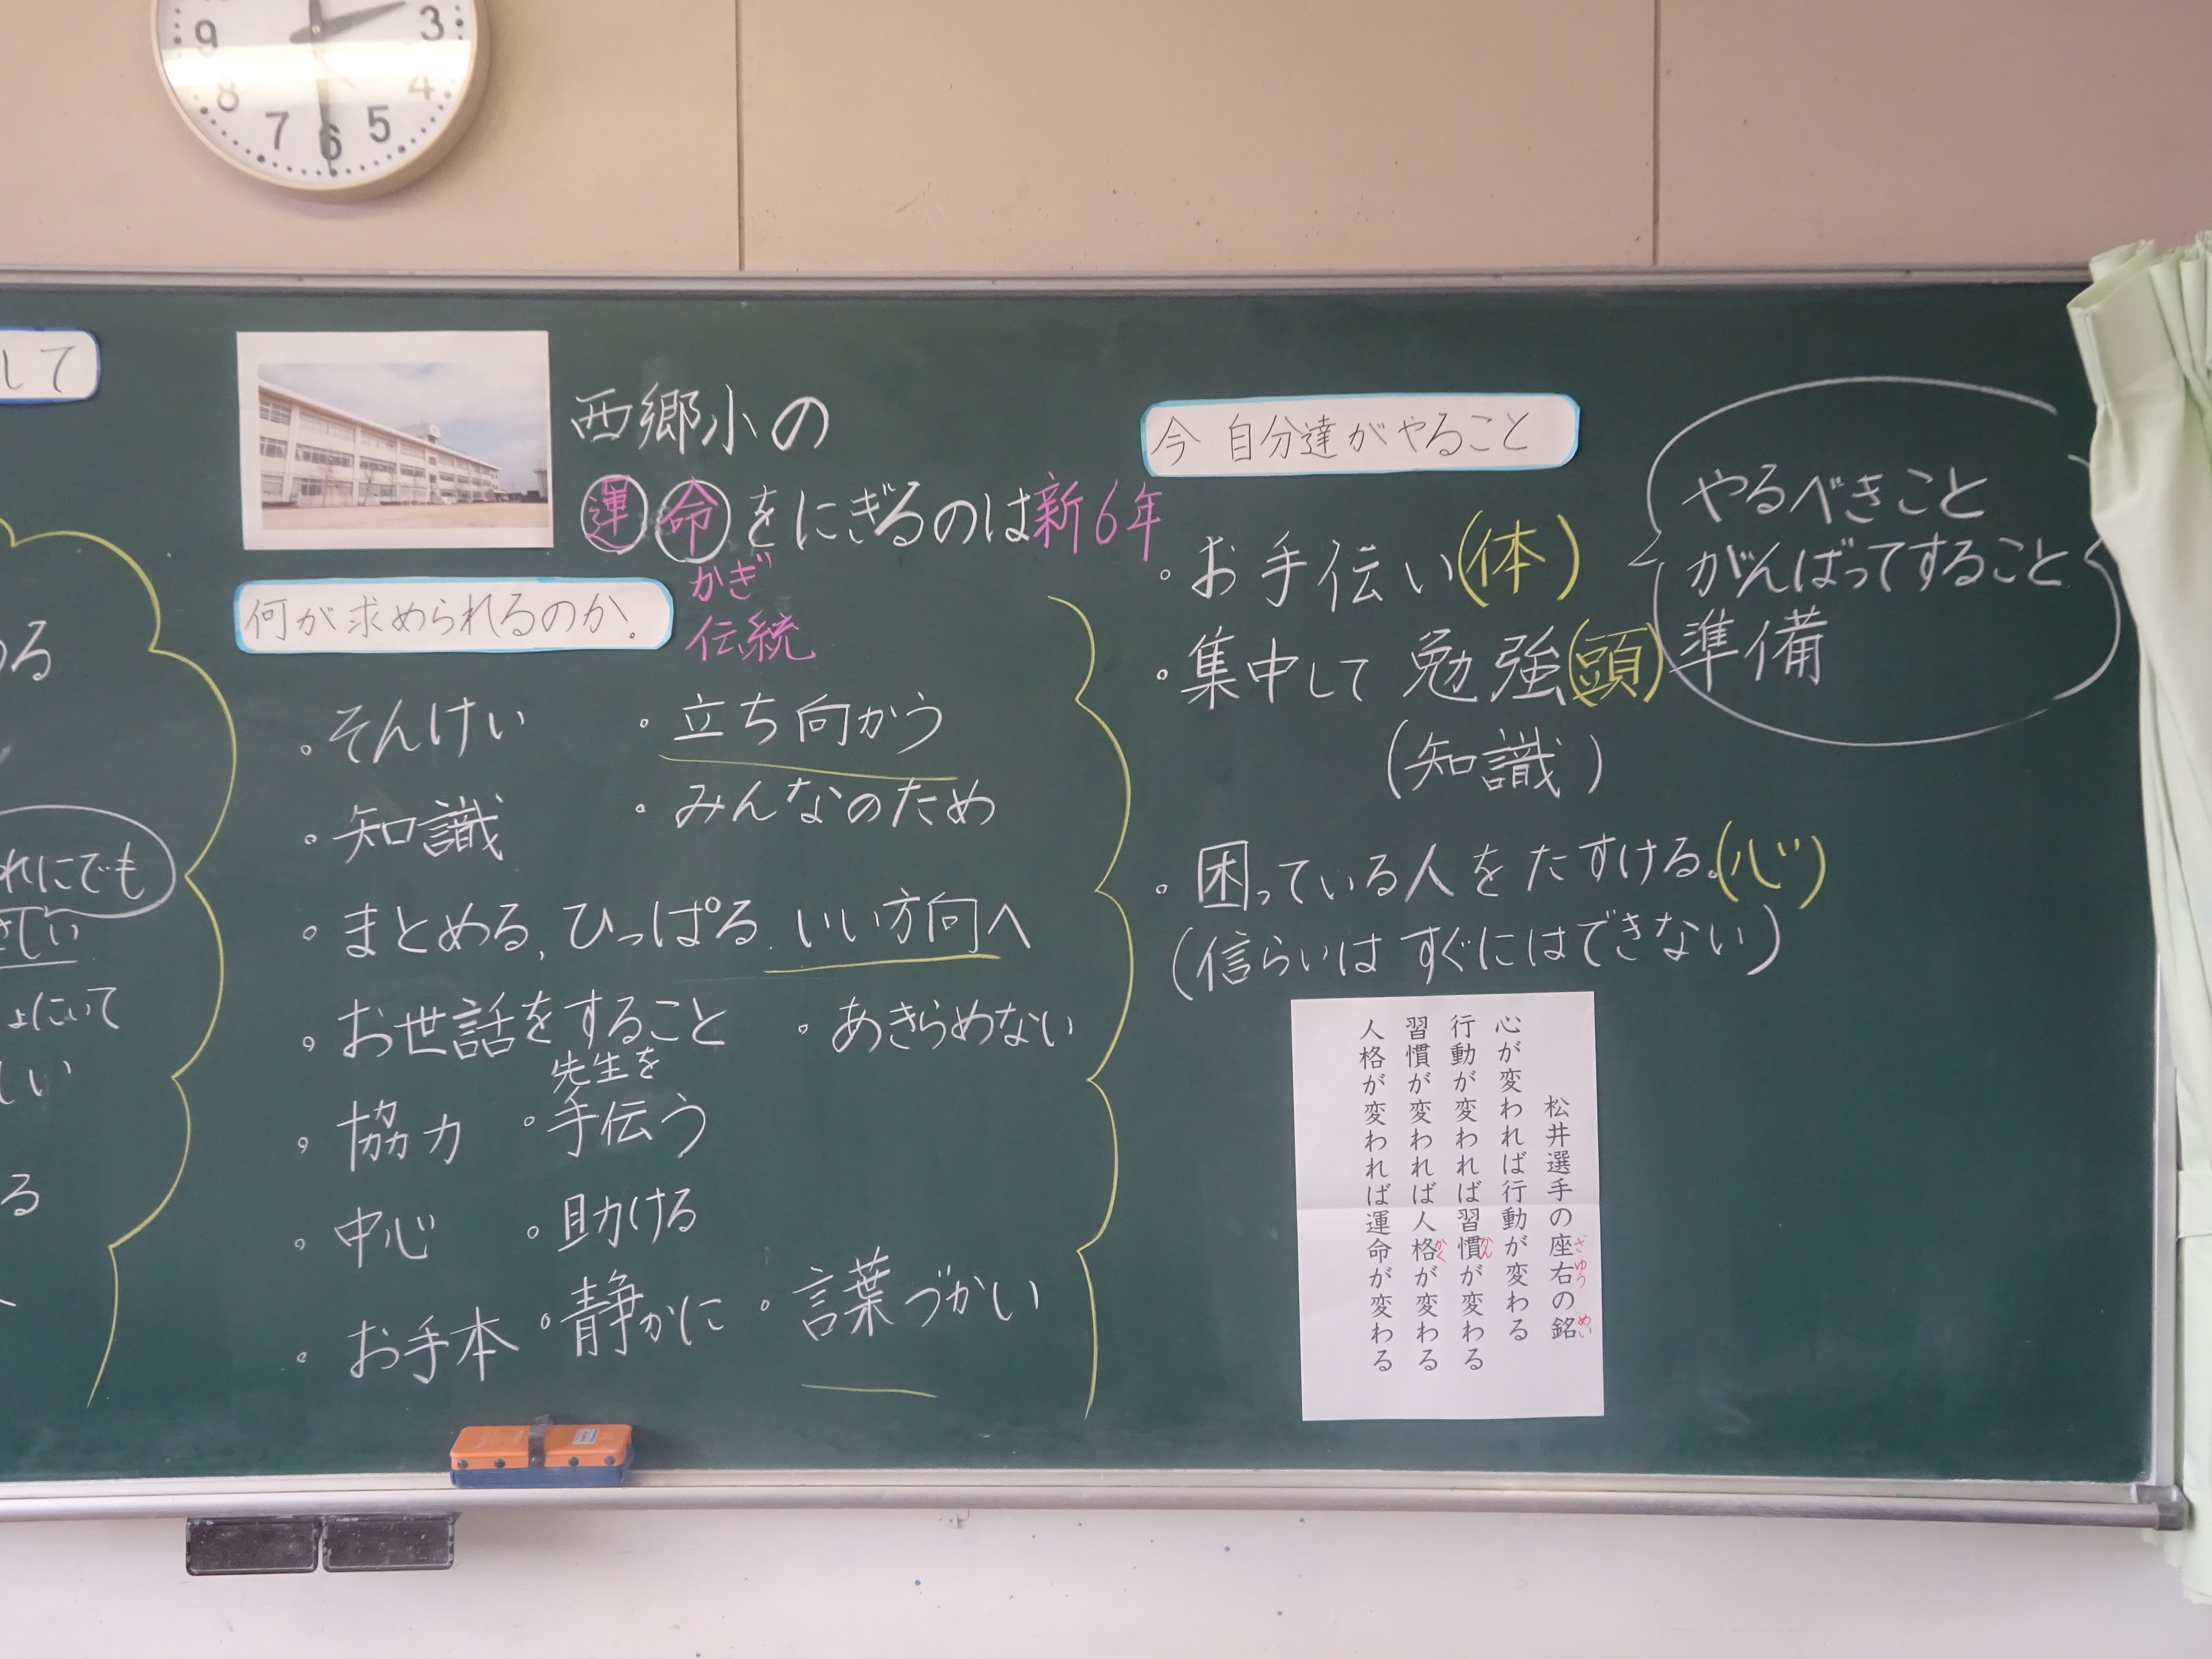 9
3
8
4
7
6
5
して
める
れにでも
さしい
ょにいて
しい
る
西郷小の
運命をにぎるのは新6年
かぎ
伝統
何が求められるのか。
・そんけい
・立ち向かう
・知識
・みんなのため
・まとめる,ひっぱる.いい方向へ
・お世話をすること
・あきらめない
・協力
先生を
・手伝う
・中心
・助ける
・お手本
・静かに
・言葉づかい
今 自分達がやること
・お手伝い(体)
・集中して 勉強(頭)
(知識)
・困っている人をたすける。(心)
(信らいは すぐにはできない)
やるべきこと
がんばってすること
準備
松井選手の座右の銘
ざゆう めい
心が変われば行動が変わる
行動が変われば習慣が変わる
かん
習慣が変われば人格が変わる
かく
人格が変われば運命が変わる